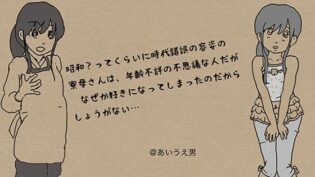 昭和？ってくらいに時代錯誤の容姿の
寮母さんは、年齢不詳の不思議な人だが
なぜか好きになってしまったのだから
しょうがない…
@あいうえ男